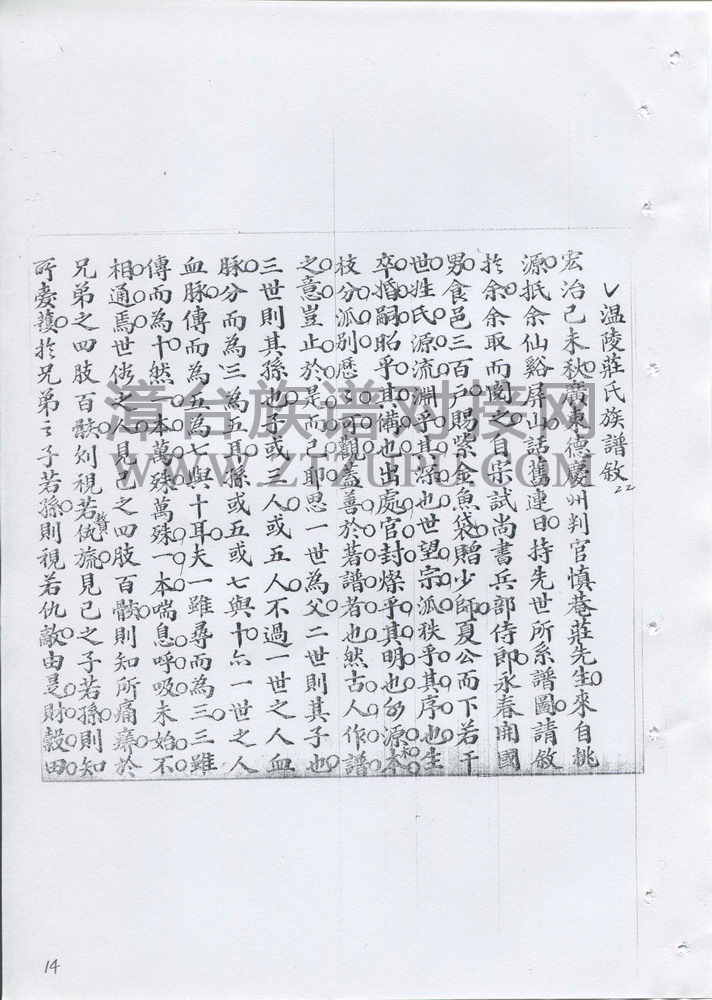 温陵莊氏族譜敘
宏治己未秋廣東德慶州判官慎菴莊先生來自桃
源抵余仙谿屏山話舊連日持先世所系譜圖請敘
於余余取而閱之自宋試尚書兵部侍郎永春開國
男食邑三百戶賜紫金魚袋贈少師夏公而下若干
世姓氏源流淵乎其深也世望宗派秩乎其序也生
卒婚嗣昭乎其備也出處官封燦乎其明也源本
枝分派別歷可觀蓋善於著譜者也然古人作譜
之意豈止於是而已耶思一世為父二世則其子也
三世則其孫也子或三人或五人不過一世之人血
脉分而為三為五耳孫或五或七與十亦一世之人
血脉傳而為五為七與十耳夫一雖尋而為三三雖
傳而為十然一本萬殊萬殊一本喘息呼吸未始不
相通焉世俗之人見己之四肢百骸則知所痛癢於
兄弟之四肢百骸則視若贅旒見己之子若孫則知
所愛護於兄弟之子若孫則視若仇敵由是財穀田
漳台族谱对接网
WWW.ZTZUPU.COM
14